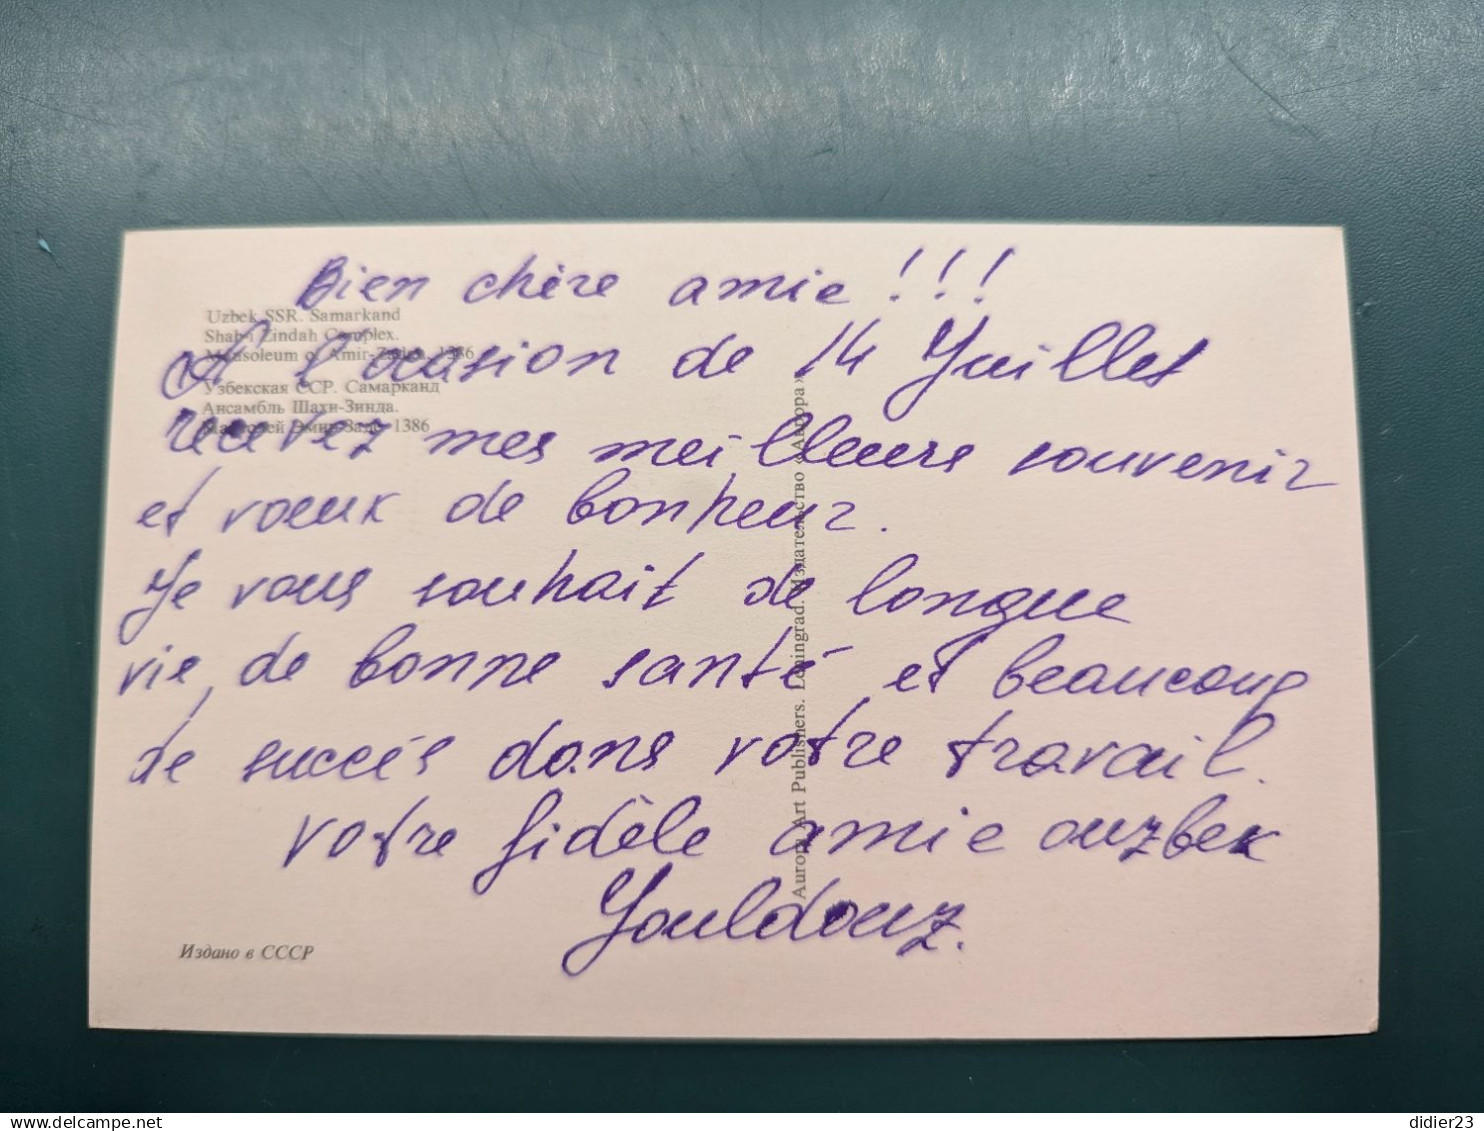 Bien chère amie !!!
A l'ocasion de 14 Juillet
recevez mes meilleurs souvenir
et voeux de bonheur.
Je vous souhait de longue
vie, de bonne santé et beaucoup
de succés dans votre travail.
votre fidèle amie ouzbek
Youldouz.
Uzbek SSR. Samarkand
Shah-i Zindah Complex.
Mausoleum of Amir-Zadeh, 1386
Узбекская ССР. Самарканд
Ансамбль Шахи-Зинда.
Мавзолей Эмир-Заде, 1386
Aurora Art Publishers. Leningrad. Издательство «Аврора»
Издано в СССР
didier23